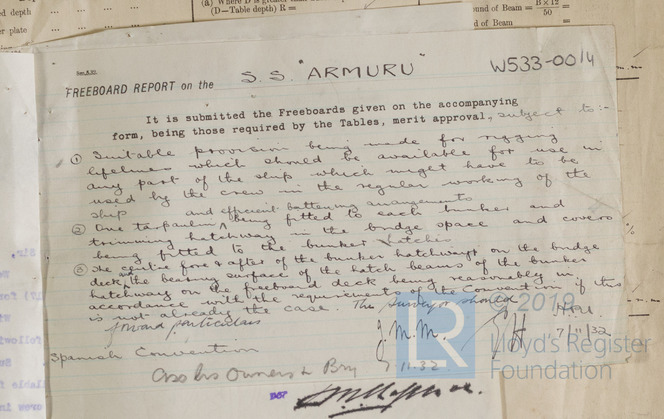 ed depth
(a) Where D is greater than
(D—Table depth) R =
ound of Beam = B×12 =
50
er plate
d of Beam =
FREEBOARD REPORT on the S.S. "ARMURU" W533-0014
It is submitted the Freeboards given on the accompanying
form, being those required by the Tables, merit approval, subject to:-
① Suitable provision being made for rigging
lifelines which should be available for use in
any part of the ship which might have to be
used by the crew in the regular working of the
ship
and efficient battening arrangements
② One tarpaulin ^ being fitted to each bunker and
trimming hatchway in the bridge space and covers
being fitted to the bunker hatches
③ The centre fore & after of the bunker hatchways on the bridge
deck, the bearing surface of the hatch beams of the bunker
hatchway on the freeboard deck being reasonably in
accordance with the requirements of the Convention if this
is not already the case. The surveyor should
forward particulars
J.M.M.
7/11/32
Spanish Convention
11.32
Owners
© 2019
LR
Lloyd's Register
Foundation